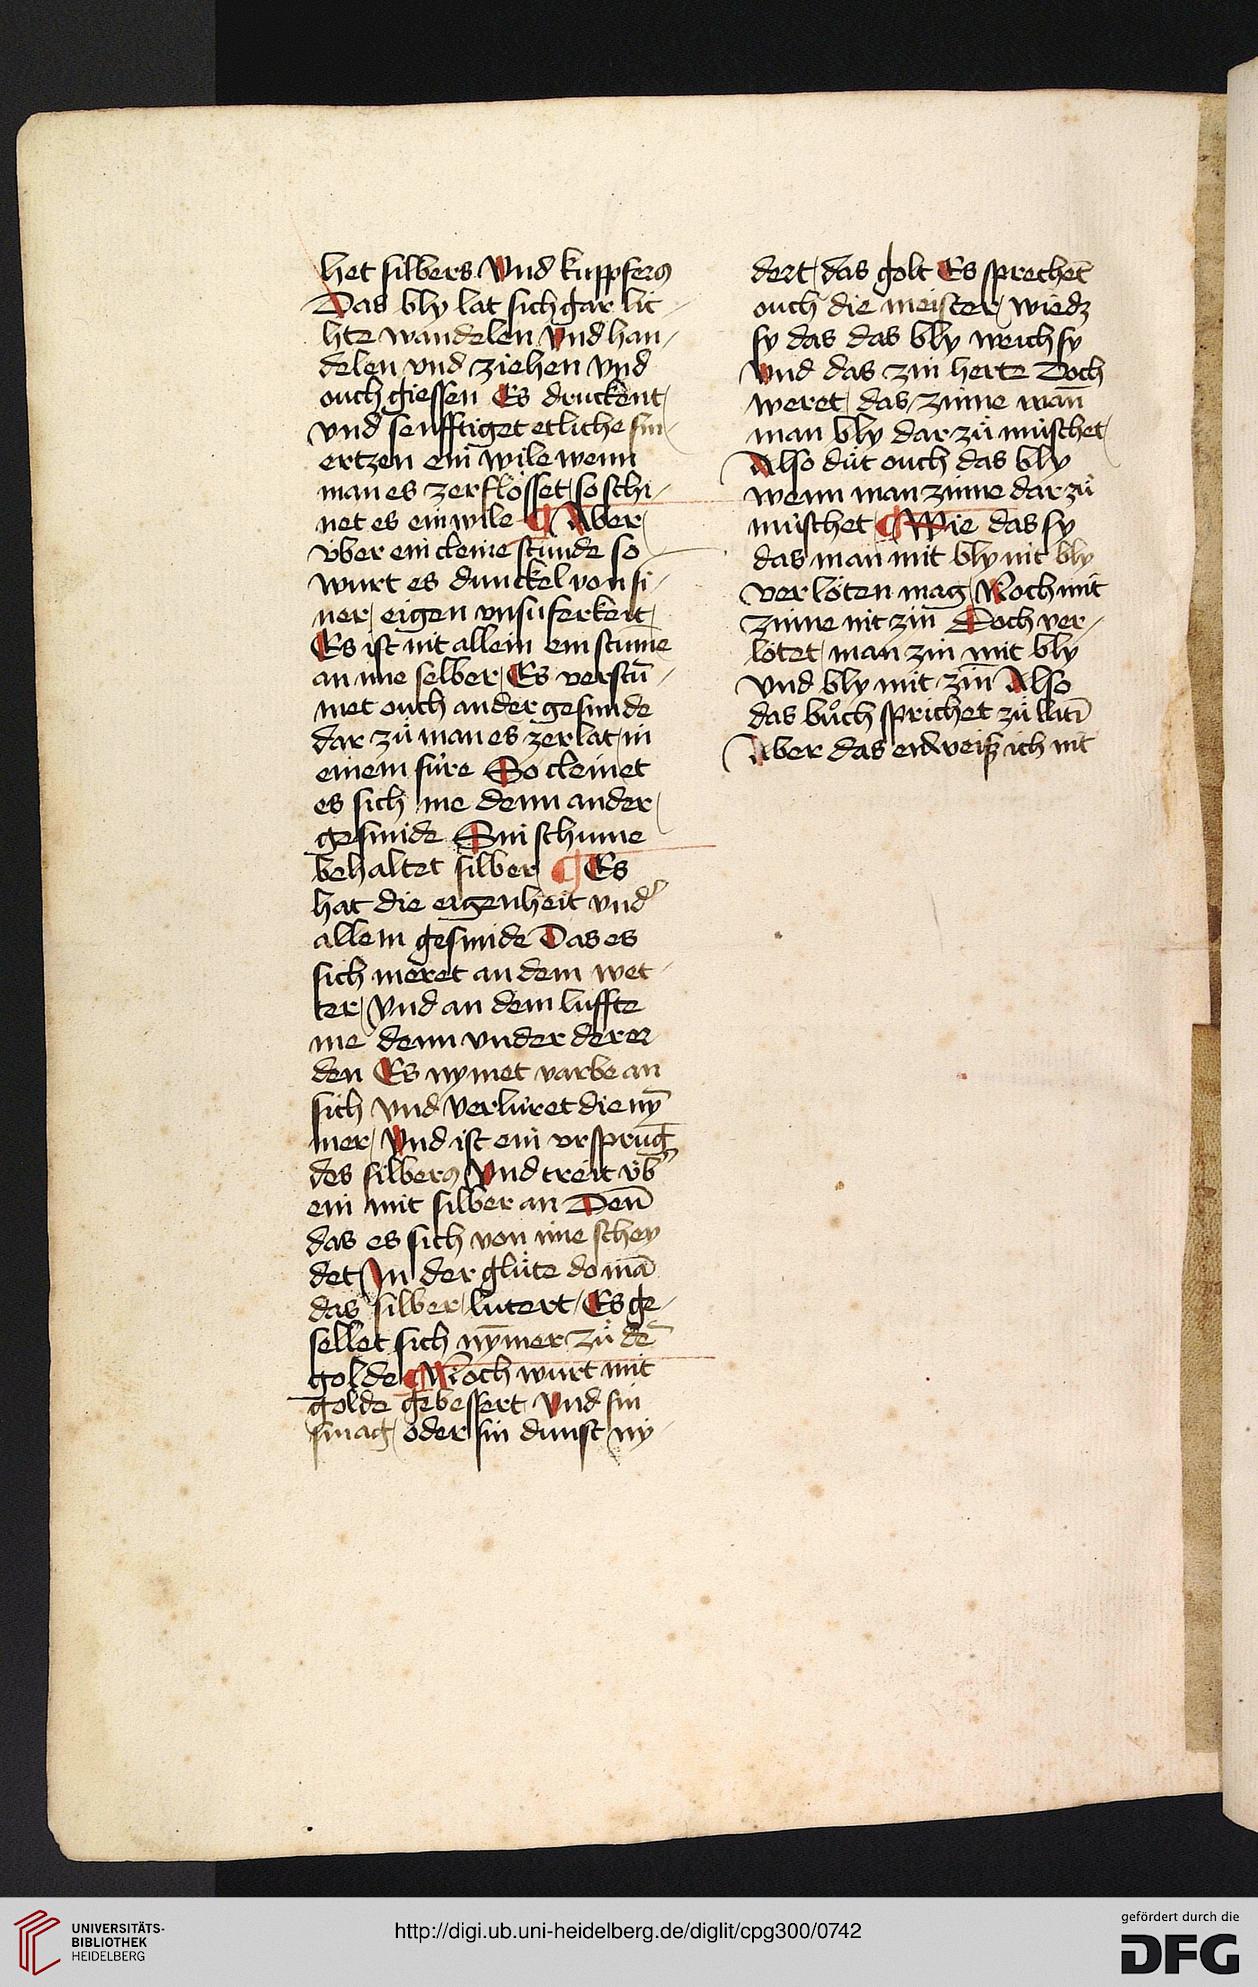 het silbers Vnd kuppfers
Das bly lat sich gar lic
hte wandelen Vnd han
delen vnd ziehen vnd
ouch giessen Es druckent
vnd senfftiget etliche sin
ertzen ein wile wenn
man es zerflösset so schi
net es ein wile ¶ Aber
vber ein cleine stunde so
wurt es dunckel von si
ner eigen vnsuferkeit
Es ist nit allein ein stume
an ime selber Es verstū
met ouch ander gesmide
dar zů man es zerlat in
einem füre So cleinet
es sich me denn ander
gesmide Sin schume
behaltet silber ¶ Es
hat die eigenheit vnd'
allem gesmide Das es
sich meret an dem wet
ter Vnd an dem luffte
me denn vnder der er
den Es nymet varbe an
sich vnd verlüret die ny̅
mer Vnd ist ein vrsprūg
des silbers Vnd treit vb'
ein mit silber an Den̅
das es sich von ime schey
det In der glůte do mā
das silber lutert Es ge
sellet sich ny̅mer zů dē
golde ¶ Noch wurt mit
golde gebessert Vnd sin
smag oder sin dunst ny
dert das golt Es sprechēt
ouch die meister wiedz
sy das das bly weich sy
Vnd das zin herte Doch
weret das zinne wan̅
man bly dar zů müschet
Also düt ouch das bly
wenn man zinne dar zů
müschet ¶ Wie das sy
das man mit bly nit bly
verlöten mag Noch mit
zinne nit zin Doch ver
lötet man zin mit bly
vnd bly mit zin Also
das bůch sprichet zů latī
Aber das enweiß ich nit
UNIVERSITÄTS-
BIBLIOTHEK
HEIDELBERG
http://digi.ub.uni-heidelberg.de/diglit/cpg300/0742
gefördert durch die
DFG